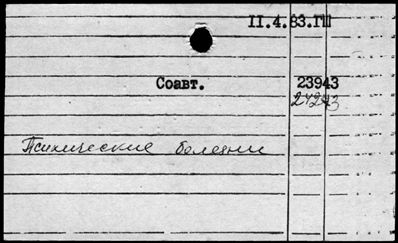 II.4.83.ГШ
Соавт. 23943
24243
Психические болезни